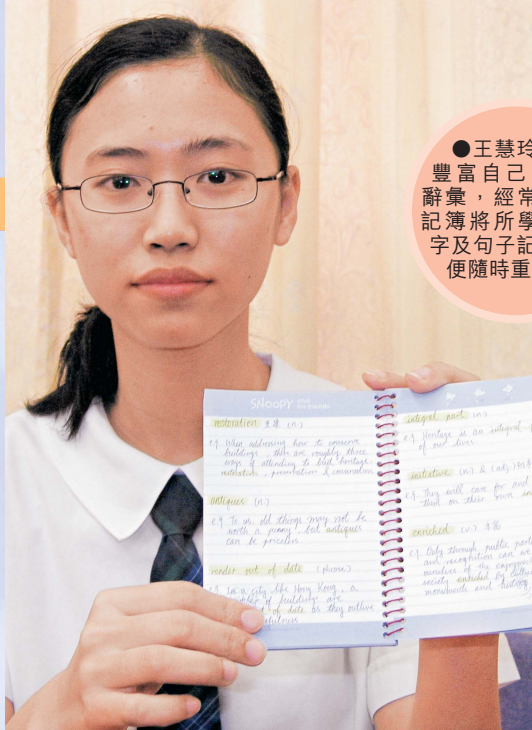 ●王慧玲
豐富自己
辭彙，經常
記簿將所學
字及句子記
便隨時重
SNOOPY
restoration (n.)
e.g. When addressing how to conserve
buildings, there are roughly three
ways of attending to built heritage:
restoration, preservation & conservation
antiques (n.)
e.g. To us, old things may not be
worth a penny, but antiques
can be priceless
render out of date (phrase)
e.g. In a city like Hong Kong, a
of buildings are
of date as they outlive
usefulness
integral part (n.)
e.g. Heritage is an integral
of our lives.
initiative (n.) & (adj.)
e.g. They will care for and
them on their own
enriched (v.)
e.g. Only through public
and recognition can we
ourselves of the enjoyment
society enriched by
monuments and history